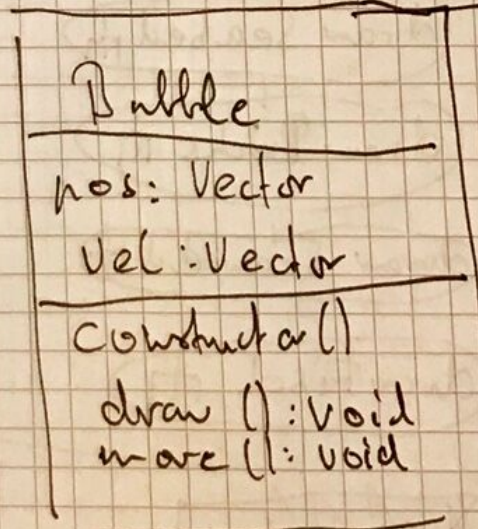 Bubble
pos: Vector
vel: Vector
constructor()
draw (): void
move (): void